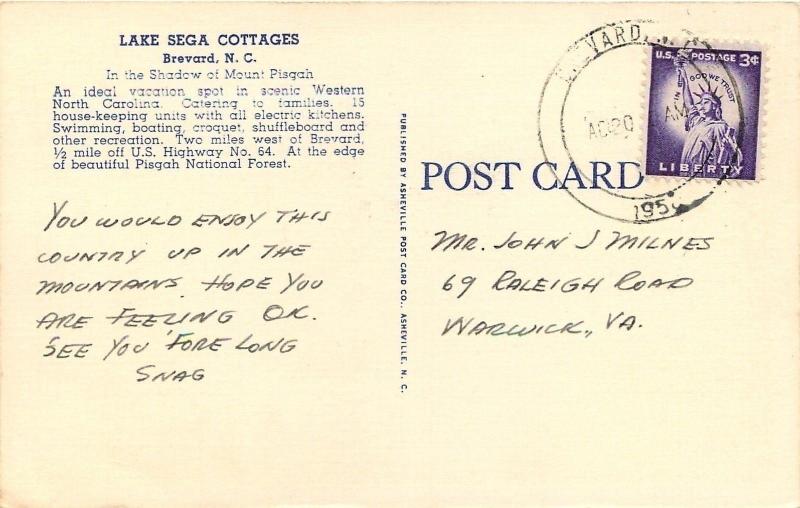 LAKE SEGA COTTAGES
Brevard, N. C.
In the Shadow of Mount Pisgah
An ideal vacation spot in scenic Western
North Carolina. Catering to families. 15
house-keeping units with all electric kitchens.
Swimming, boating, croquet, shuffleboard and
other recreation. Two miles west of Brevard,
½ mile off U.S. Highway No. 64. At the edge
of beautiful Pisgah National Forest.
YOU WOULD ENJOY THIS
COUNTRY UP IN THE
MOUNTAINS HOPE YOU
ARE FEELING OK.
SEE YOU 'FORE LONG
SNAG
PUBLISHED BY ASHEVILLE POST CARD CO., ASHEVILLE, N. C.
POST CARD
MR. JOHN J MILNES
69 RALEIGH ROAD
WARWICK, VA.
U.S. POSTAGE 3¢
IN GOD WE TRUST
LIBERTY
20
AM